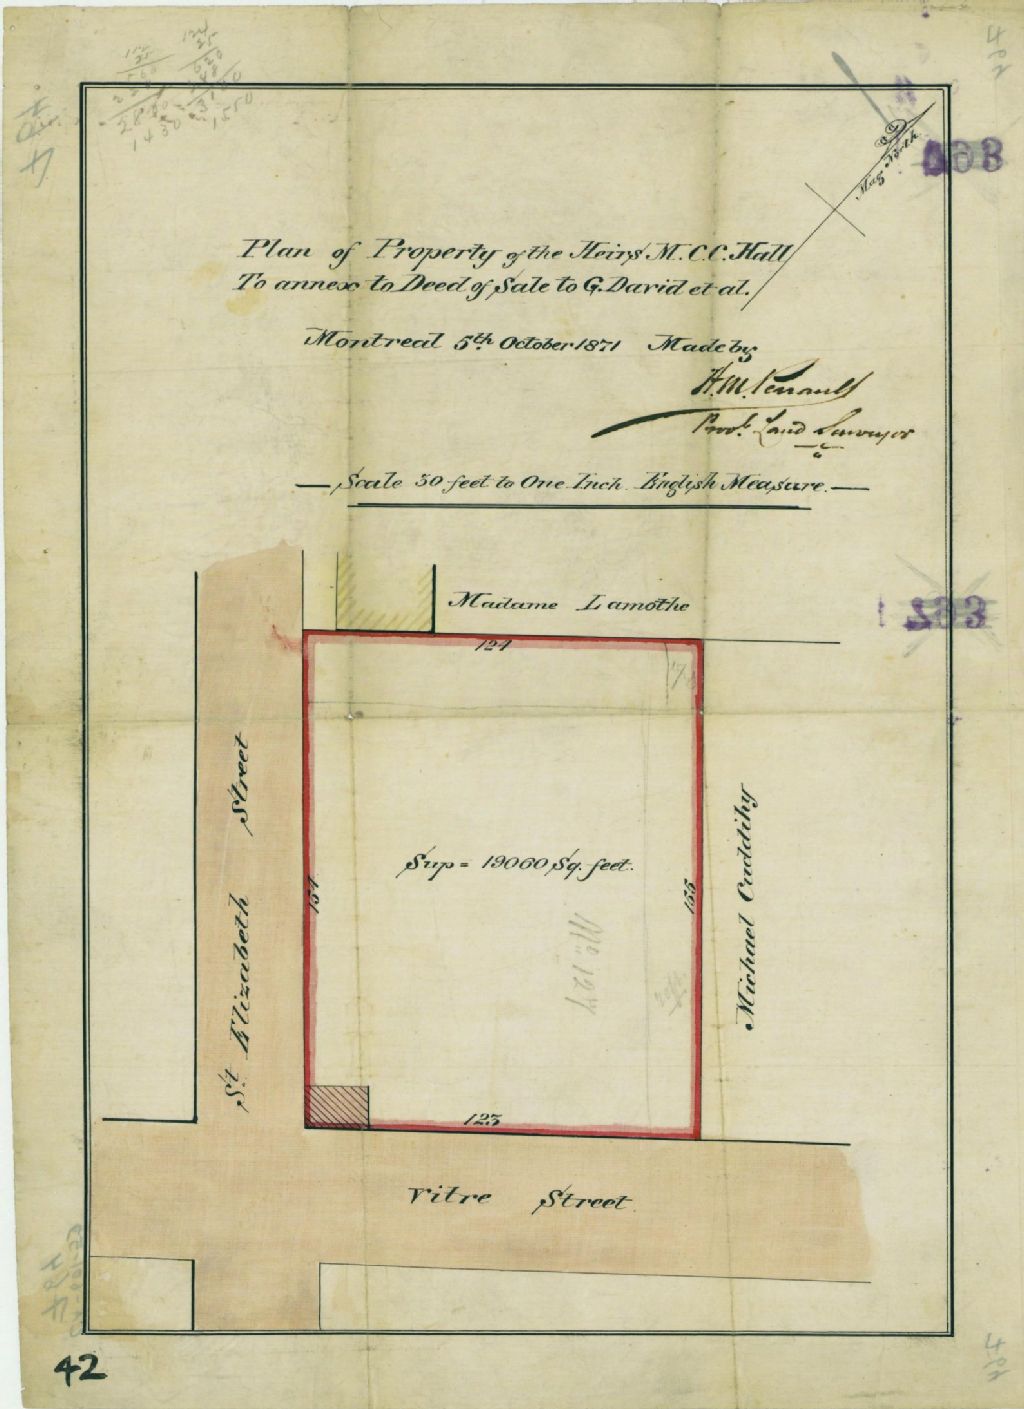 Mag North
Plan of Property of the Heirs M. C. C. Hall
To annex to Deed of Sale to G. David et al.
Montreal 5th October 1871 Made by
H. M. Perrault
Prov.l Land Surveyor
Scale 50 feet to One Inch English Measure.
Madame Lamothe
124
St. Elizabeth Street
Sup = 19060 Sq. feet.
154
155
Michael Cuddihy
No 127
123
Vitre Street
42